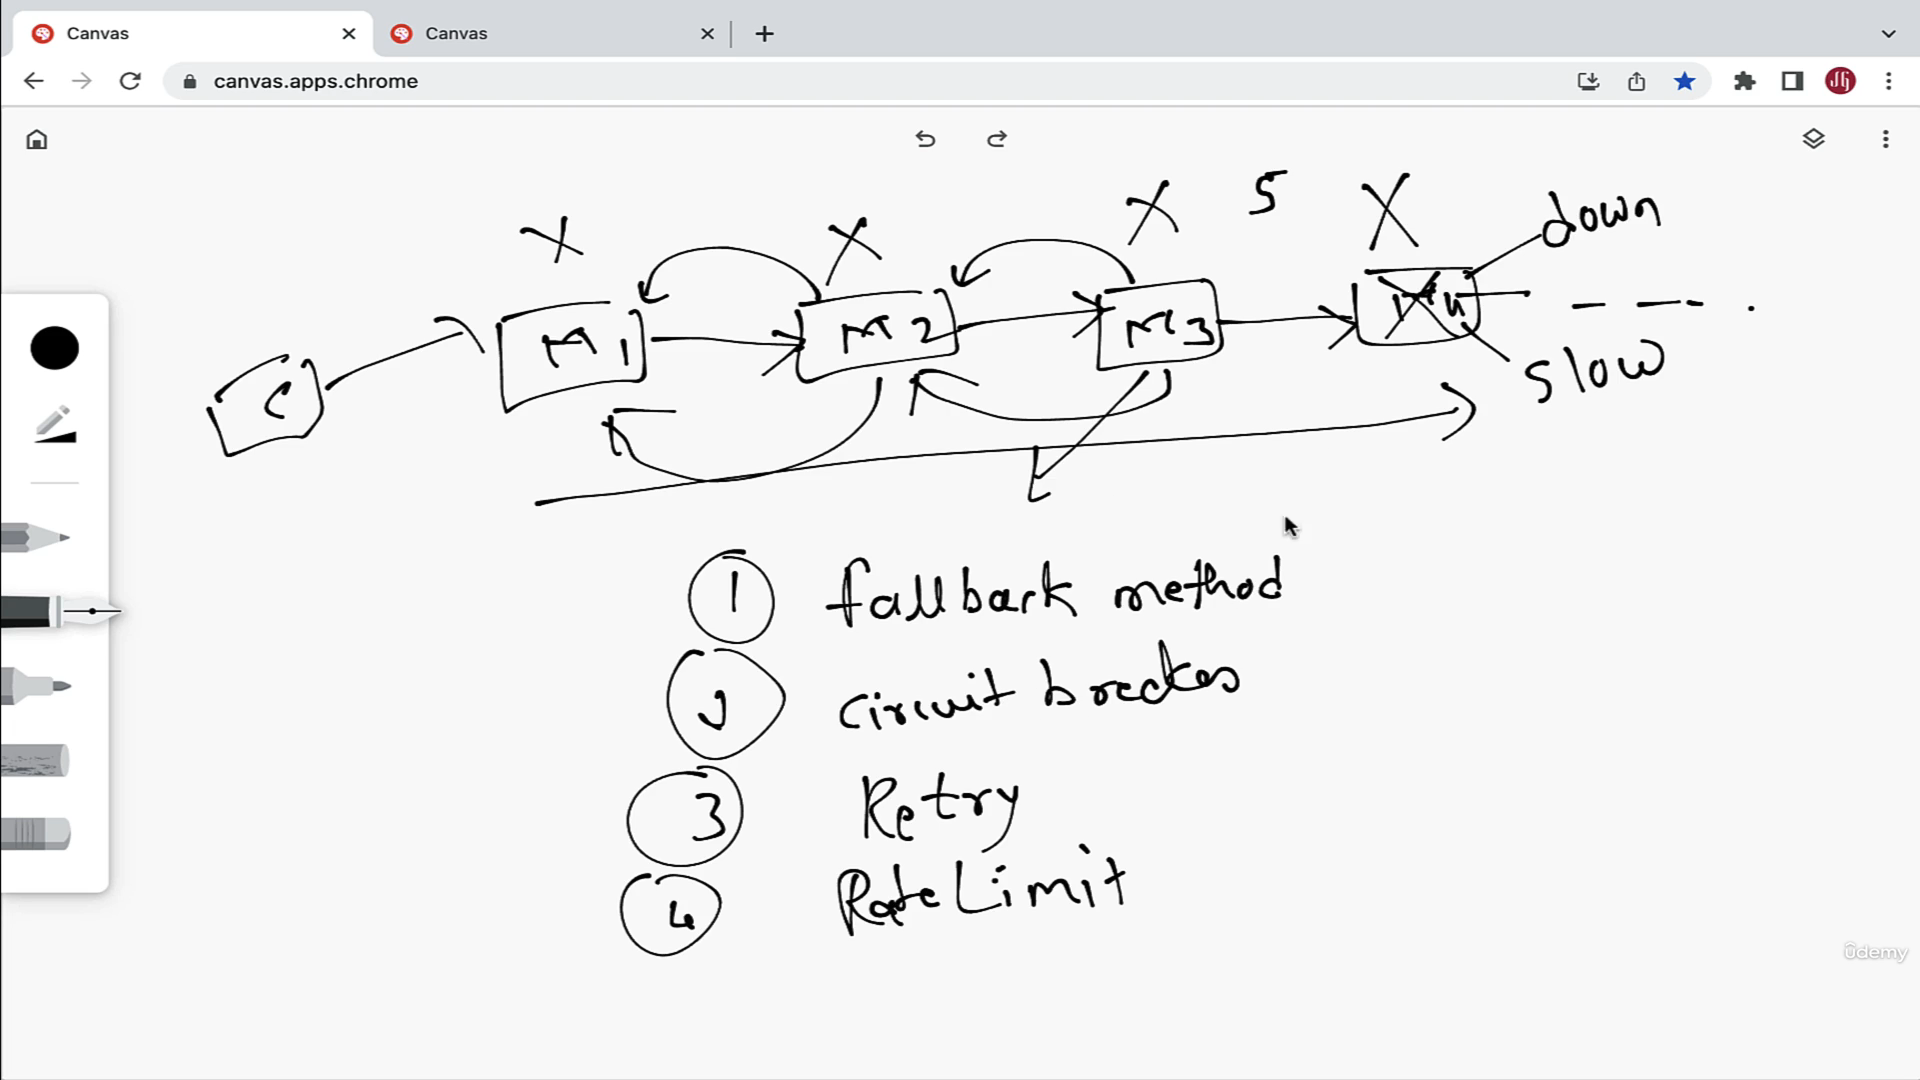 Canvas
Canvas
canvas.apps.chrome
X X X 5 X
down
C M1 M2 M3 M4
slow
1 fallback method
2 circuit breaker
3 Retry
4 RateLimit
ûdemy